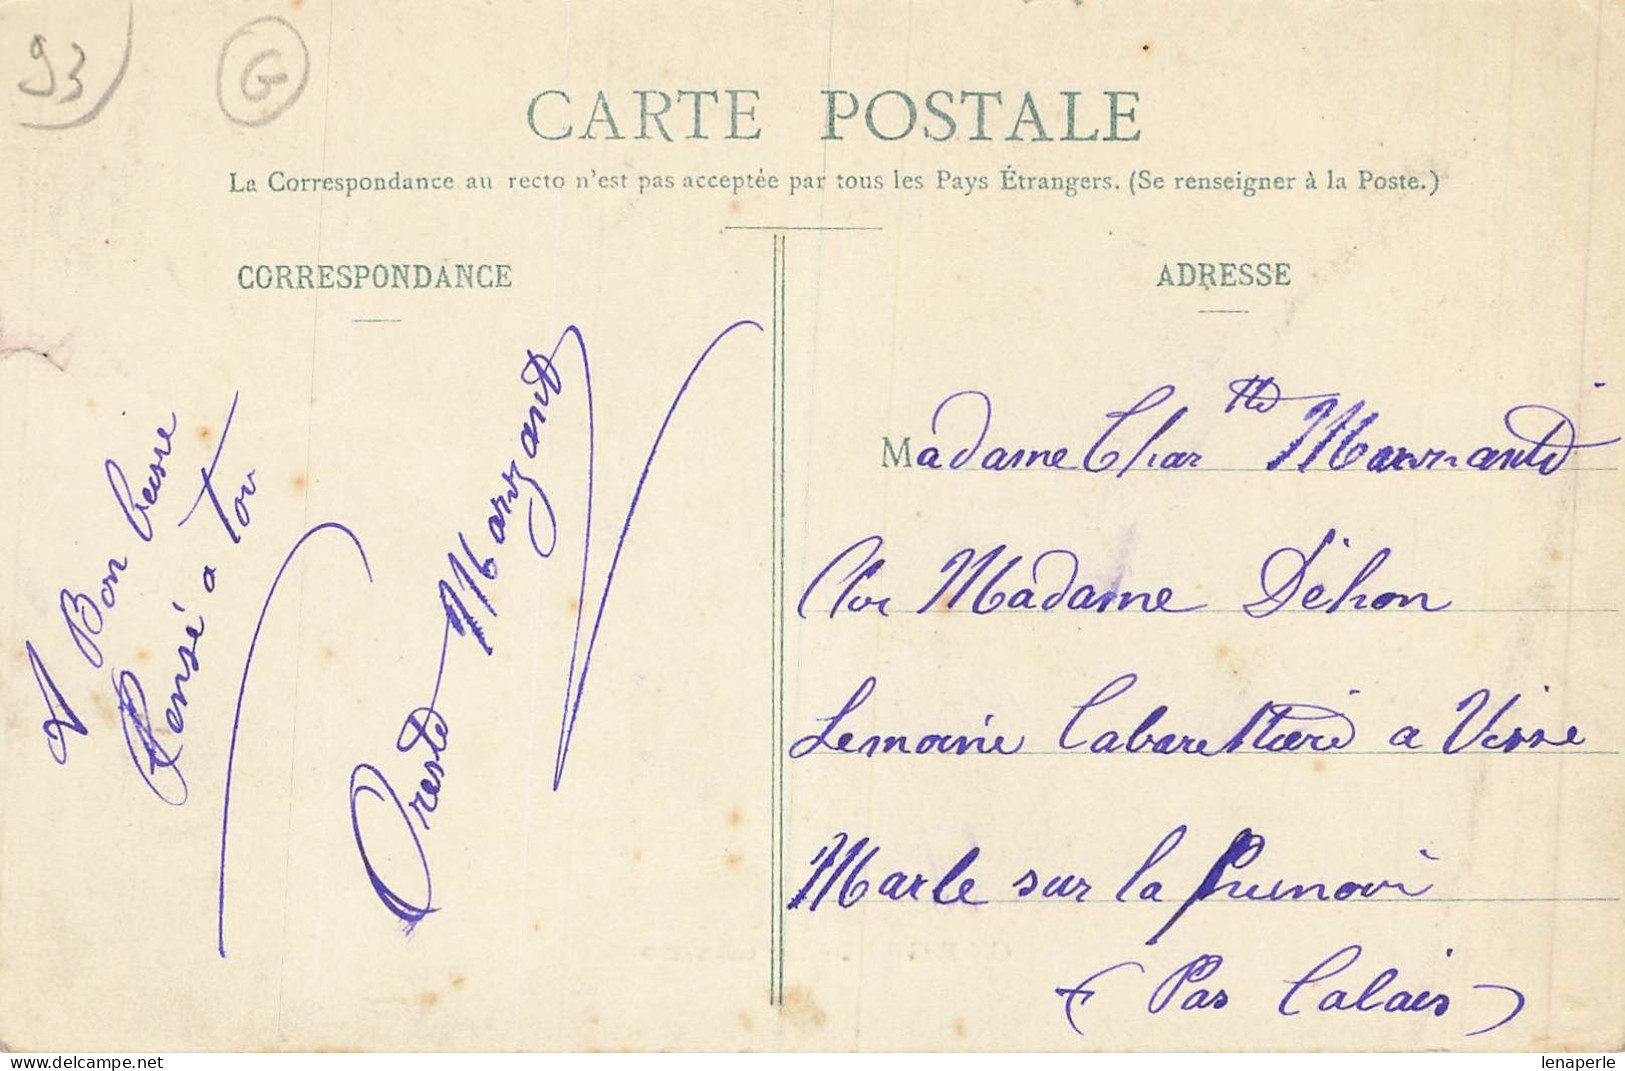 93
G
CARTE POSTALE
La Correspondance au recto n'est pas acceptée par tous les Pays Étrangers. (Se renseigner à la Poste.)
CORRESPONDANCE
Bon
Pensé a toi
Oreste Marzant
ADRESSE
Madame Char
Madame Dehon
Lemoine Cabarettiere a
Marle sur la
(Pas Calais)
delcampe.net
lenaperle